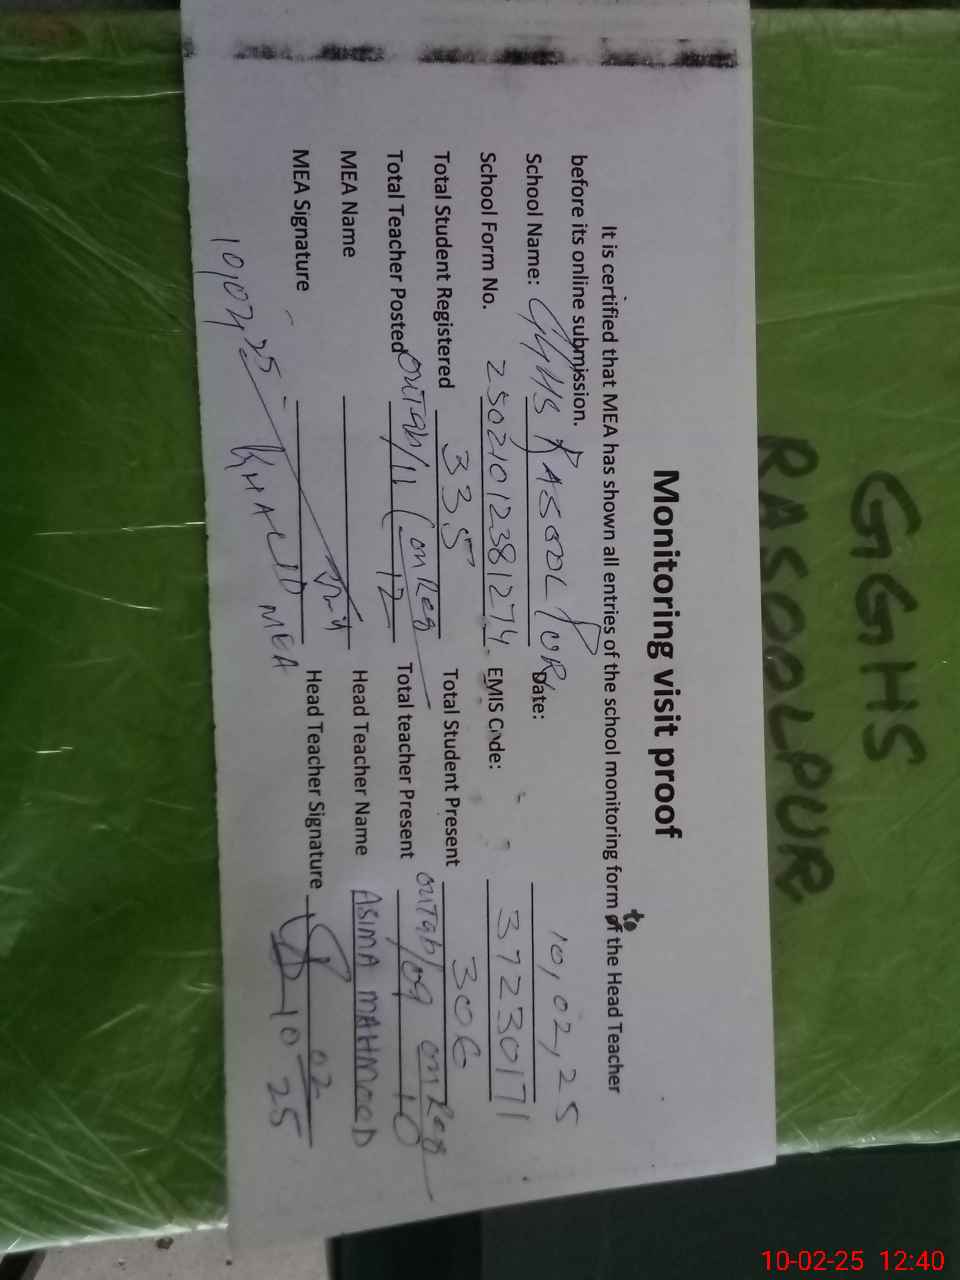 GGHS
RASOOLPUR
Monitoring visit proof
It is certified that MEA has shown all entries of the school monitoring form of to the Head Teacher
before its online submission.
School Name: GGHS RASOOLPUR Date: 10,02,25
School Form No. 25021012381274 EMIS Code: 37230171
Total Student Registered 335 Total Student Present 306
Total Teacher Posted onTab/11 (on Reg 12 Total teacher Present onTab/09 on Reg 10
MEA Name Head Teacher Name ASIMA MAHMOOD
MEA Signature Head Teacher Signature 10 02 25
10,02,25 KHALID MEA
10-02-25 12:40